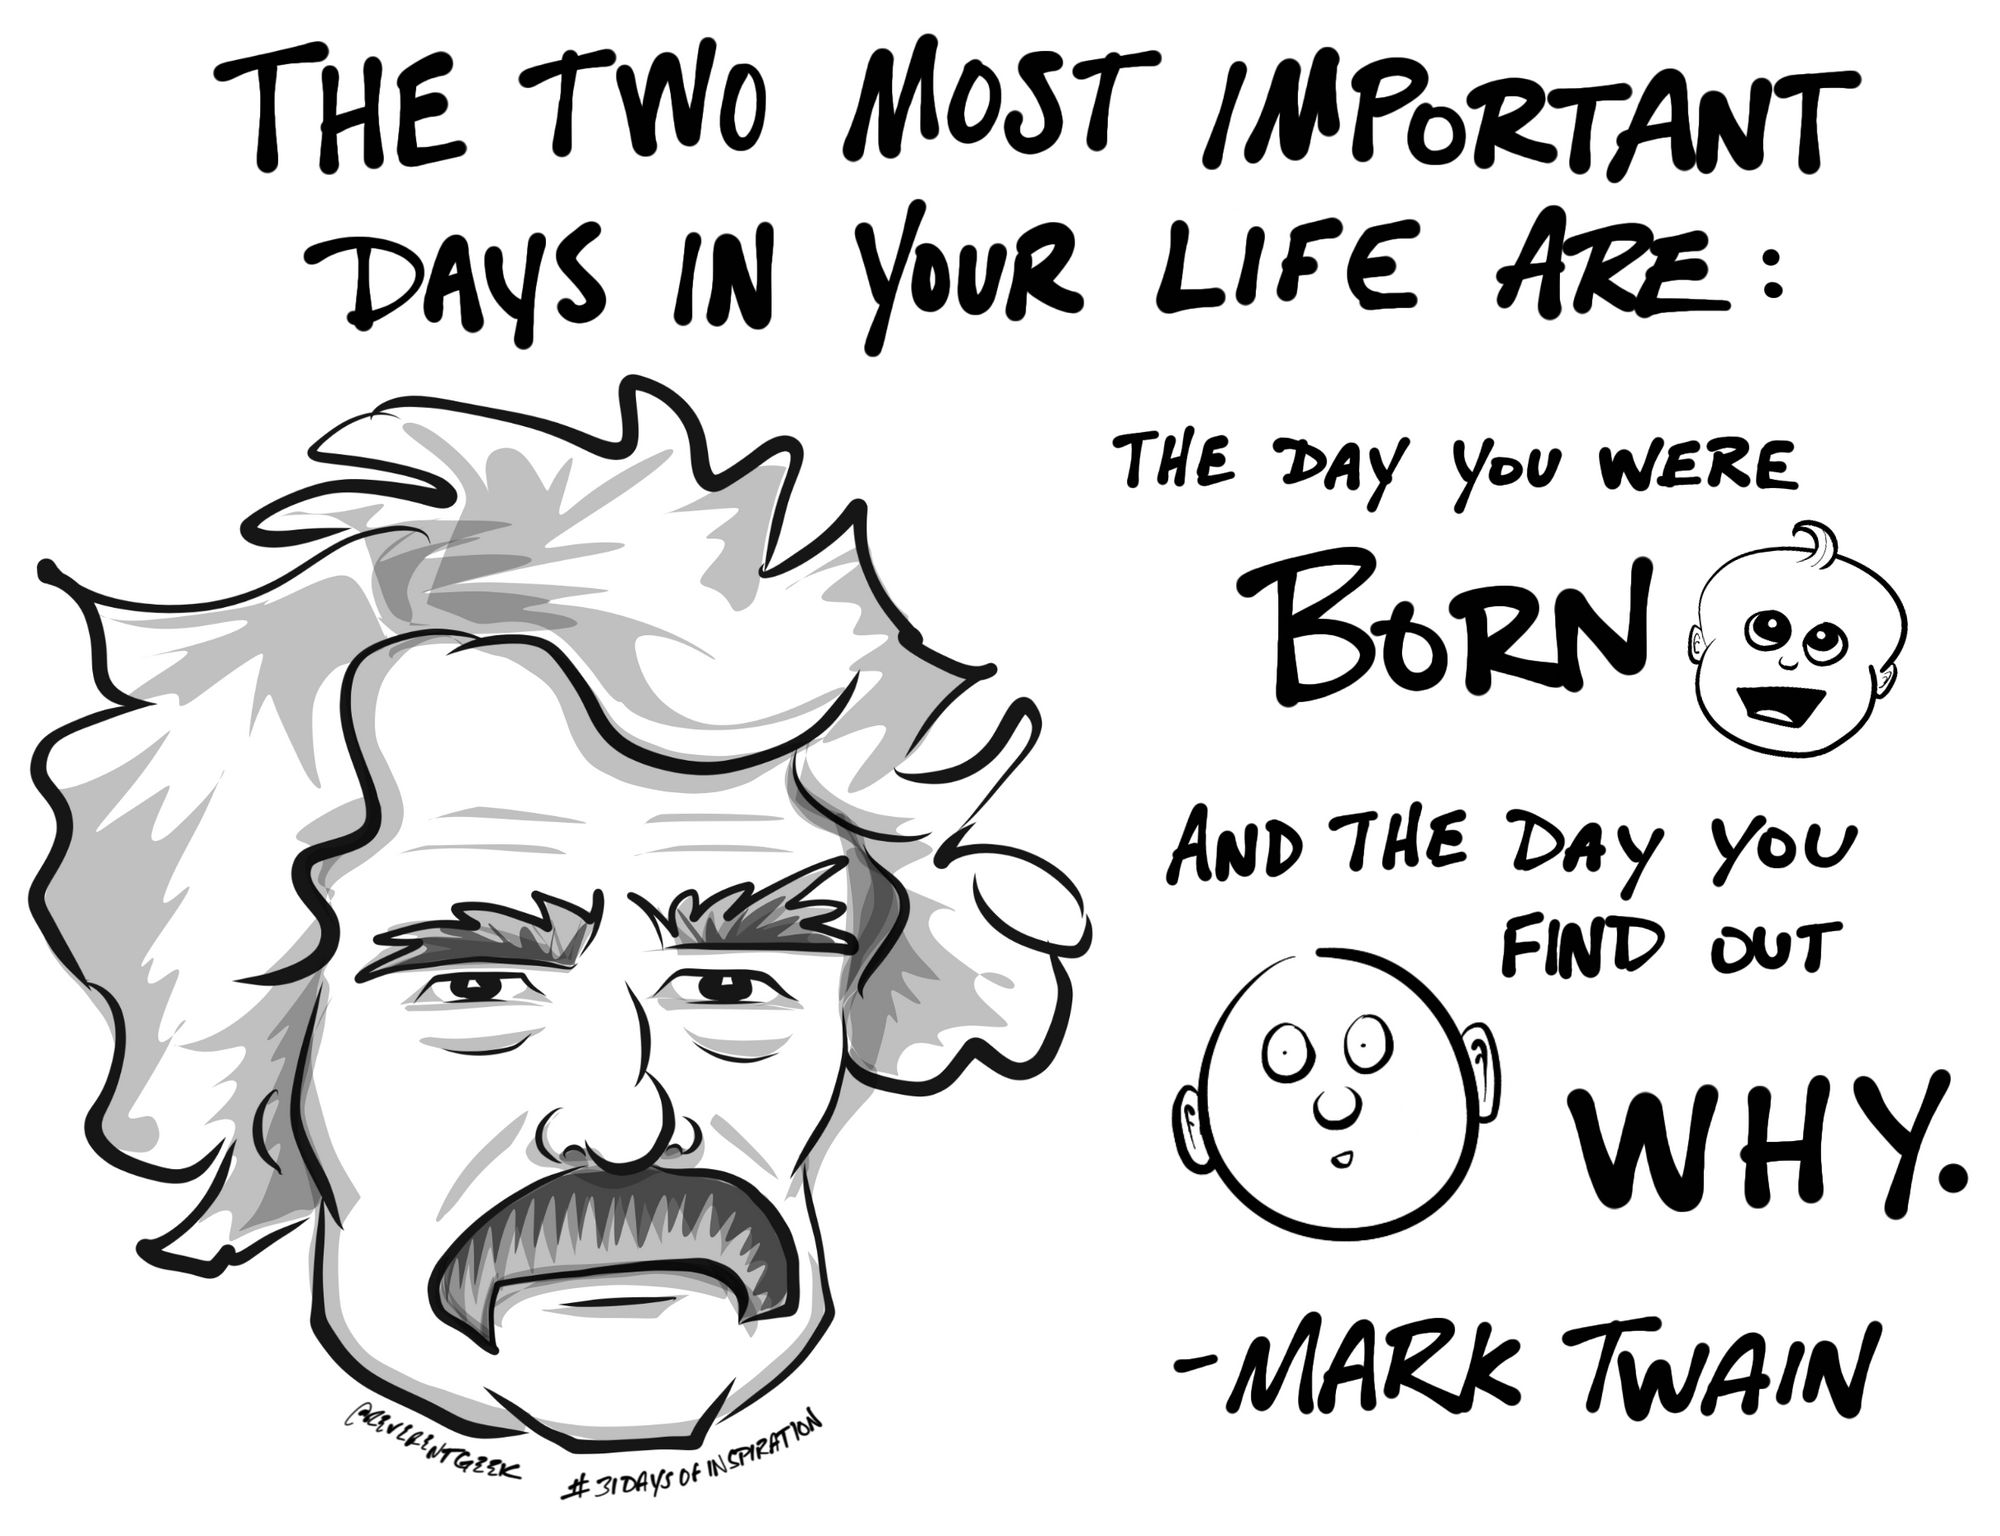 THE TWO MOST IMPORTANT
DAYS IN YOUR LIFE ARE:
THE DAY YOU WERE
BORN
AND THE DAY YOU
FIND OUT
WHY.
-MARK TWAIN
@REVERENTGEEK
#31DAYSOFINSPIRATION